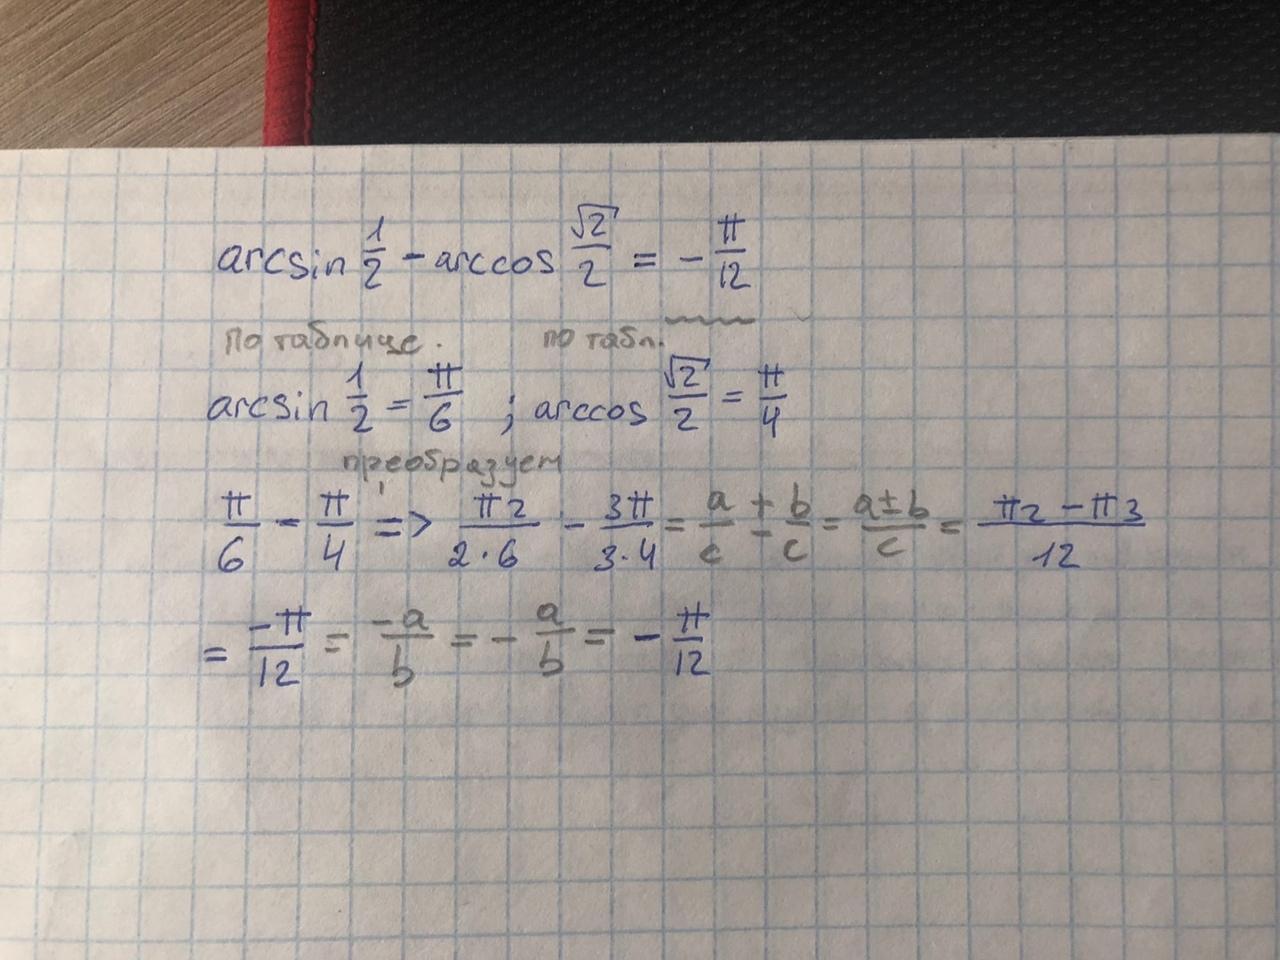 arcsin 1/2 - arccos √2/2 = - π/12
по таблице. по табл.
arcsin 1/2 = π/6 ; arccos √2/2 = π/4
преобразуем
π/6 - π/4 => π2/2·6 - 3π/3·4 = a/c ± b/c = a±b/c = π2-π3/12
= -π/12 = -a/b = - a/b = - π/12